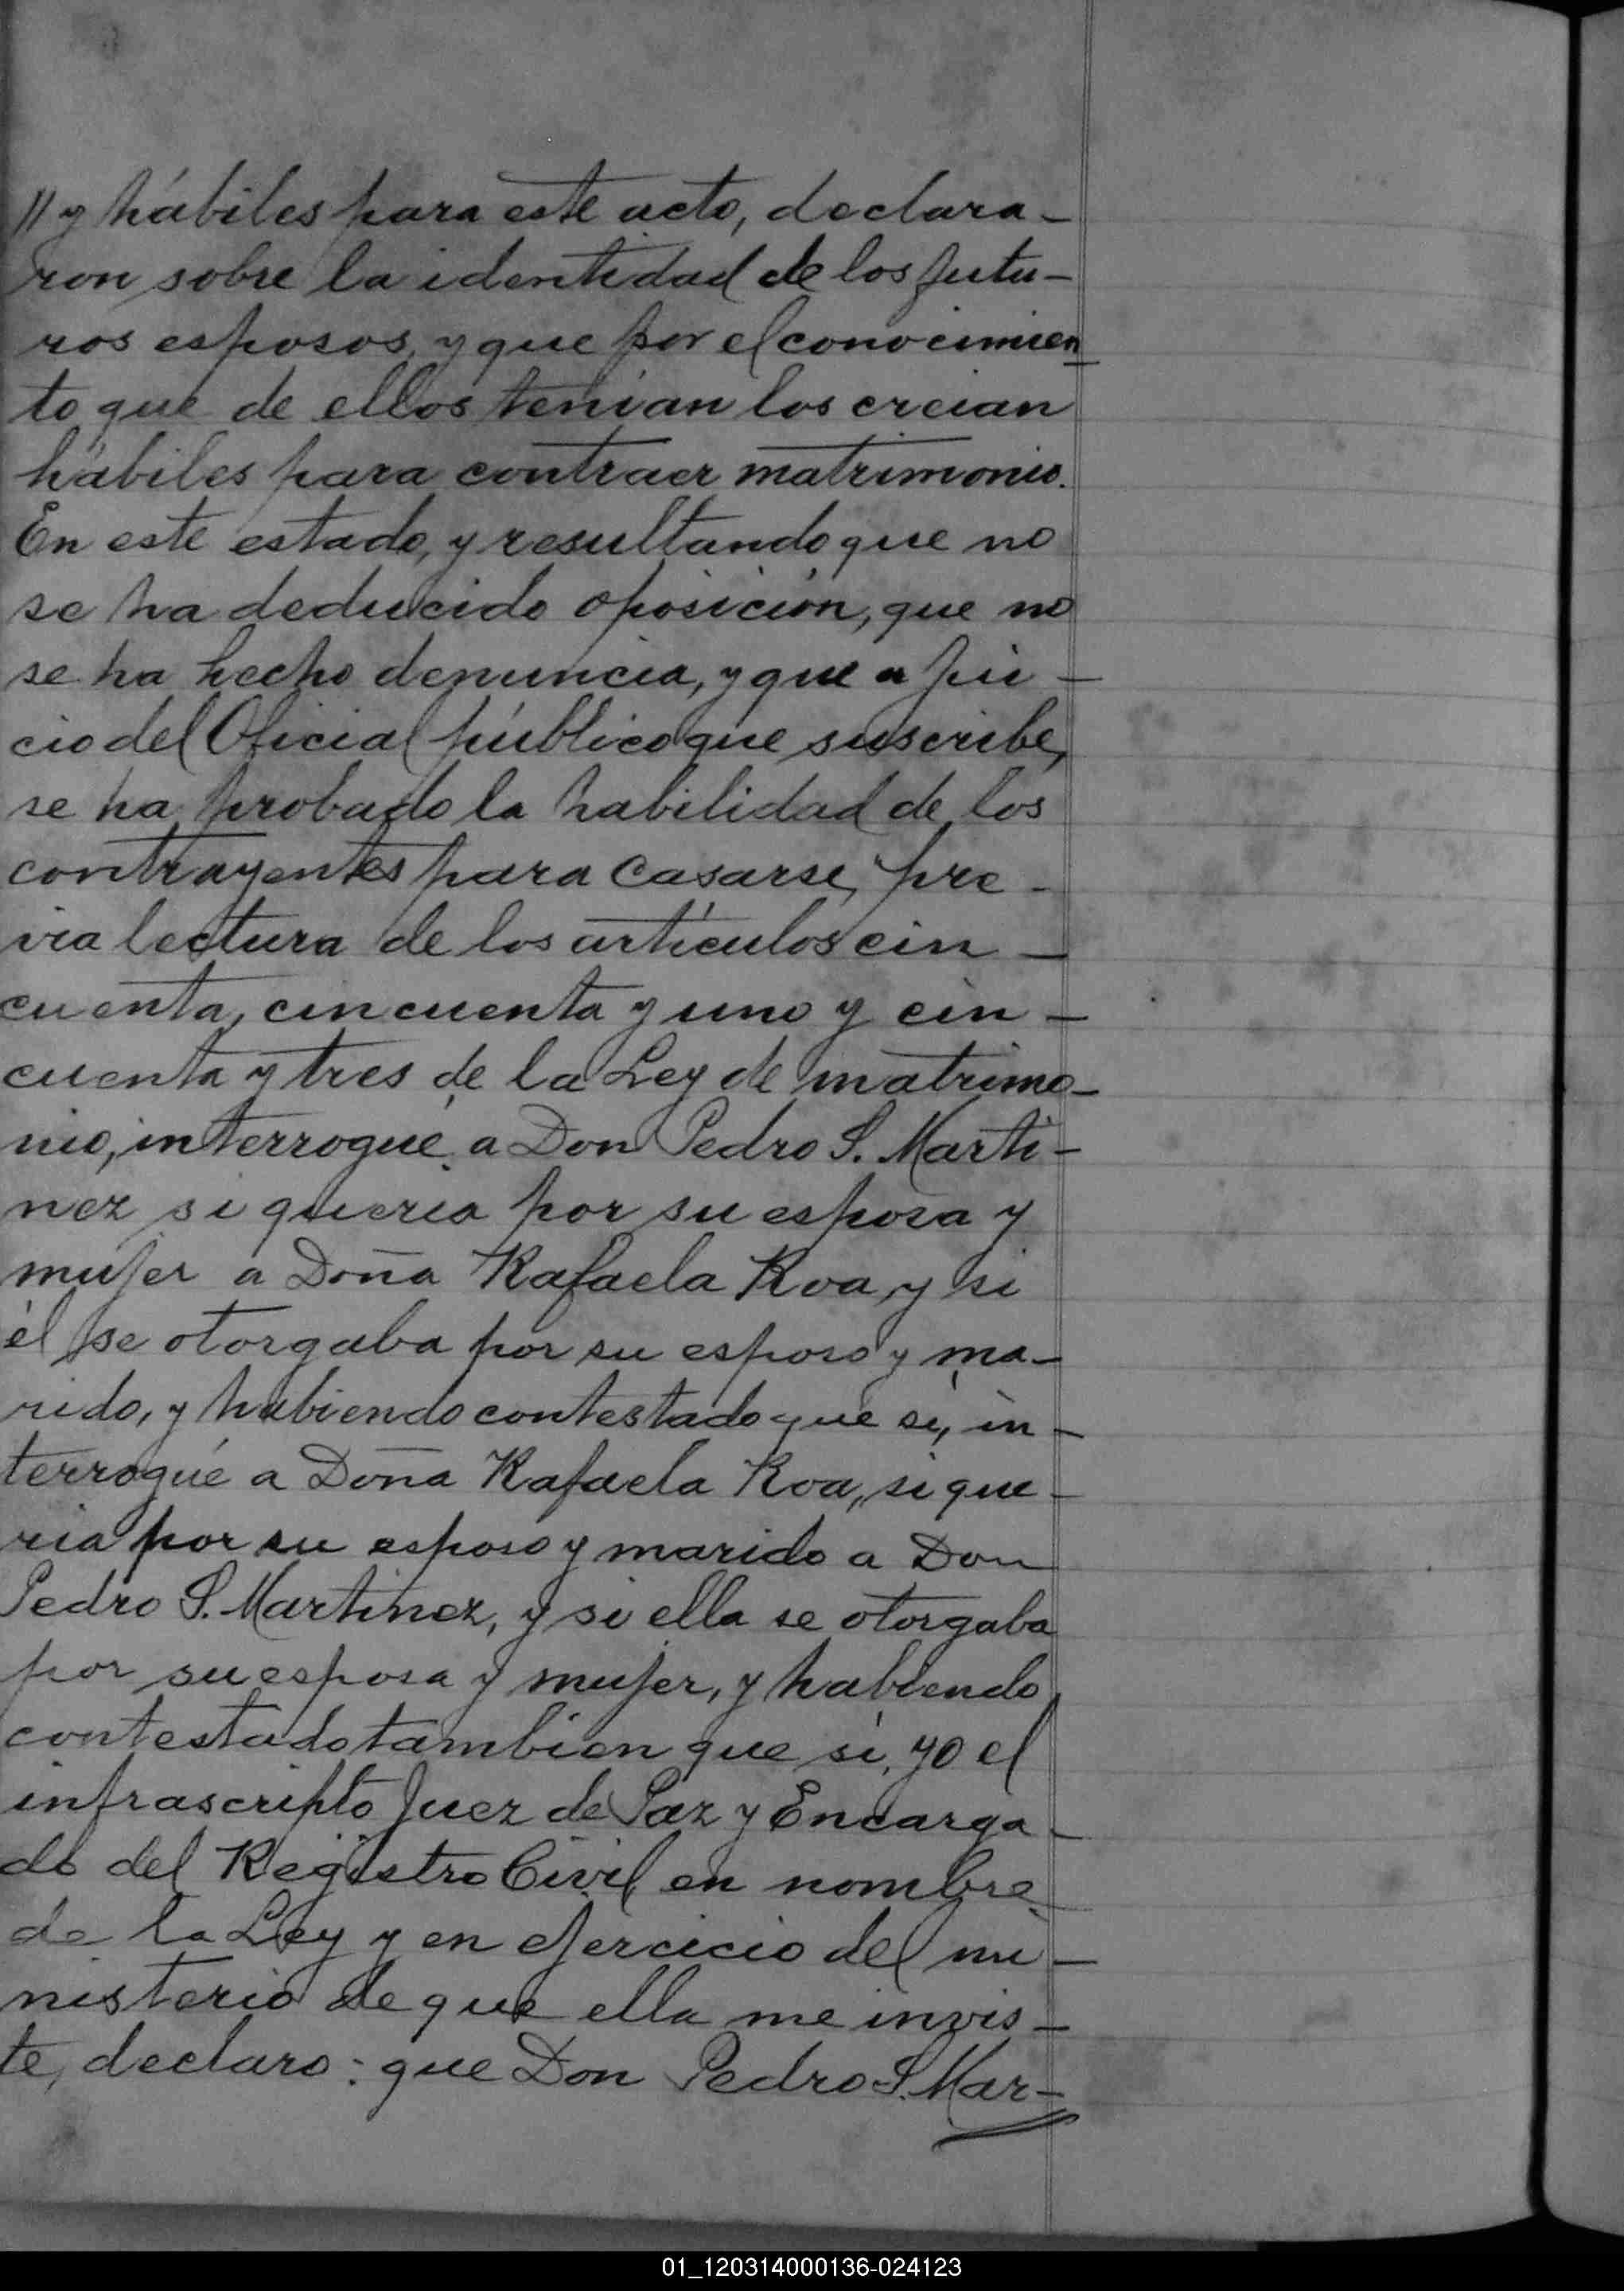 // y hábiles para este acto, declara-
ron sobre la identidad de los futu-
ros esposos, y que por el conocimien
to que de ellos tenian los creian
hábiles para contraer matrimonio.
En este estado, y resultando que no
se ha deducido oposición, que no
se ha hecho denuncia, y que a jui-
cio del Oficial público que suscribe,
se ha probado la habilidad de los
contrayentes para casarse, pre-
via lectura de los artículos cin-
cuenta, cincuenta y uno y cin-
cuenta y tres de la Ley de matrimo-
nio, interrogué a Don Pedro S. Marti-
nez si queria por su esposa y
mujer a Doña Rafaela Roa, y si
él se otorgaba por su esposo y ma-
rido, y habiendo contestado que si, in-
terrogué a Doña Rafaela Roa, si que-
ria por su esposo y marido a Don
Pedro S. Martinez, y si ella se otorgaba
por su esposa y mujer, y habiendo
contestado tambien que si, yo el
infrascripto Juez de Paz y Encarga-
do del Registro Civil, en nombre
de la Ley y en ejercicio del mi-
nisterio de que ella me invis-
te, declaro: que Don Pedro S. Mar-
01_120314000136-024123